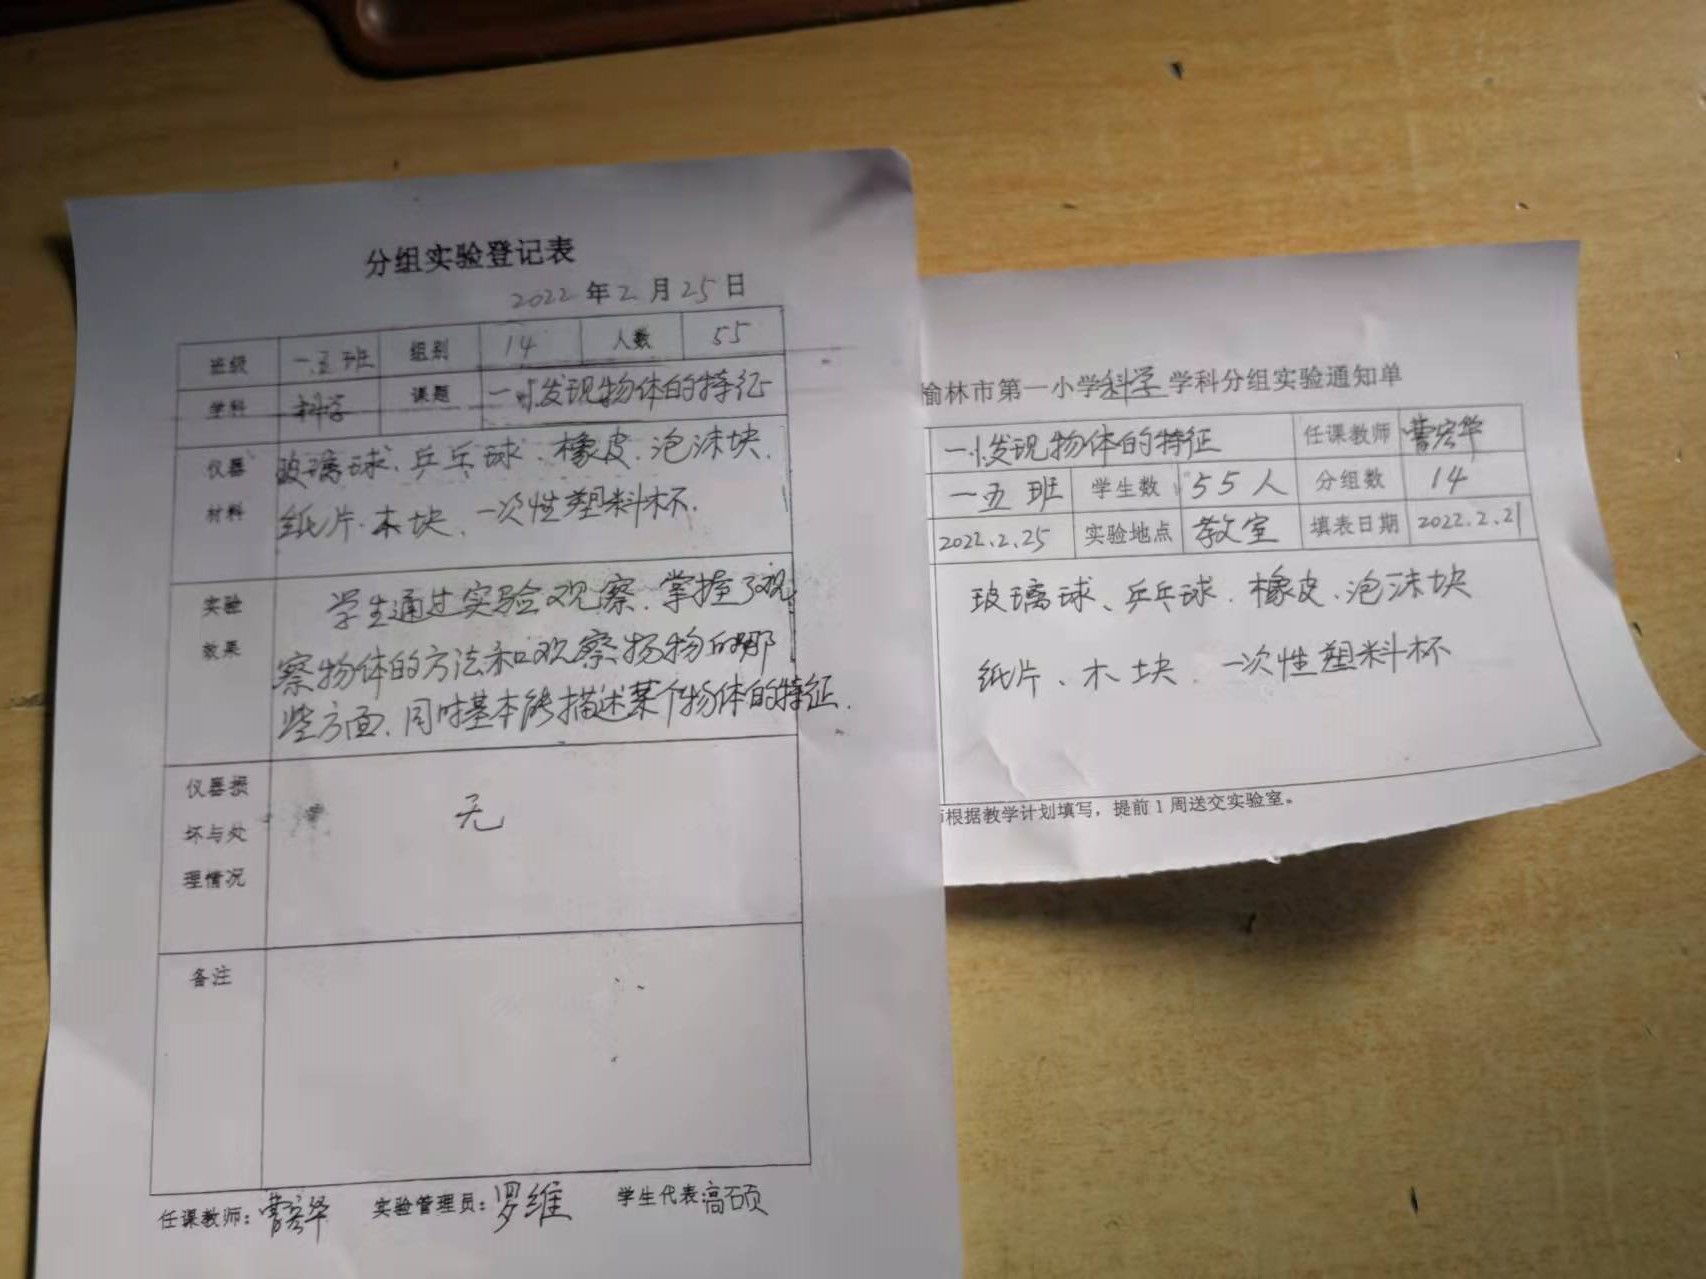 分组实验登记表
2022年2月25日
班级 一五班 组别 14 人数 55
学科 科学 课题 一.1.发现物体的特征
仪器材料
玻璃球、乒乓球、橡皮、泡沫块、
纸片、木块、一次性塑料杯.
实验效果
学生通过实验观察、掌握了观
察物体的方法和观察扬物的哪
些方面、同时基本能描述某个物体的特征.
仪器损坏与处理情况
无
备注
任课教师: 曹宏华 实验管理员: 罗维 学生代表 高硕
榆林市第一小学科学学科分组实验通知单
一.1.发现物体的特征 任课教师 曹宏华
一五班 学生数 55人 分组数 14
2022.2.25 实验地点 教室 填表日期 2022.2.21
玻璃球、乒乓球、橡皮、泡沫块
纸片、木块、一次性塑料杯
根据教学计划填写，提前1周送交实验室。